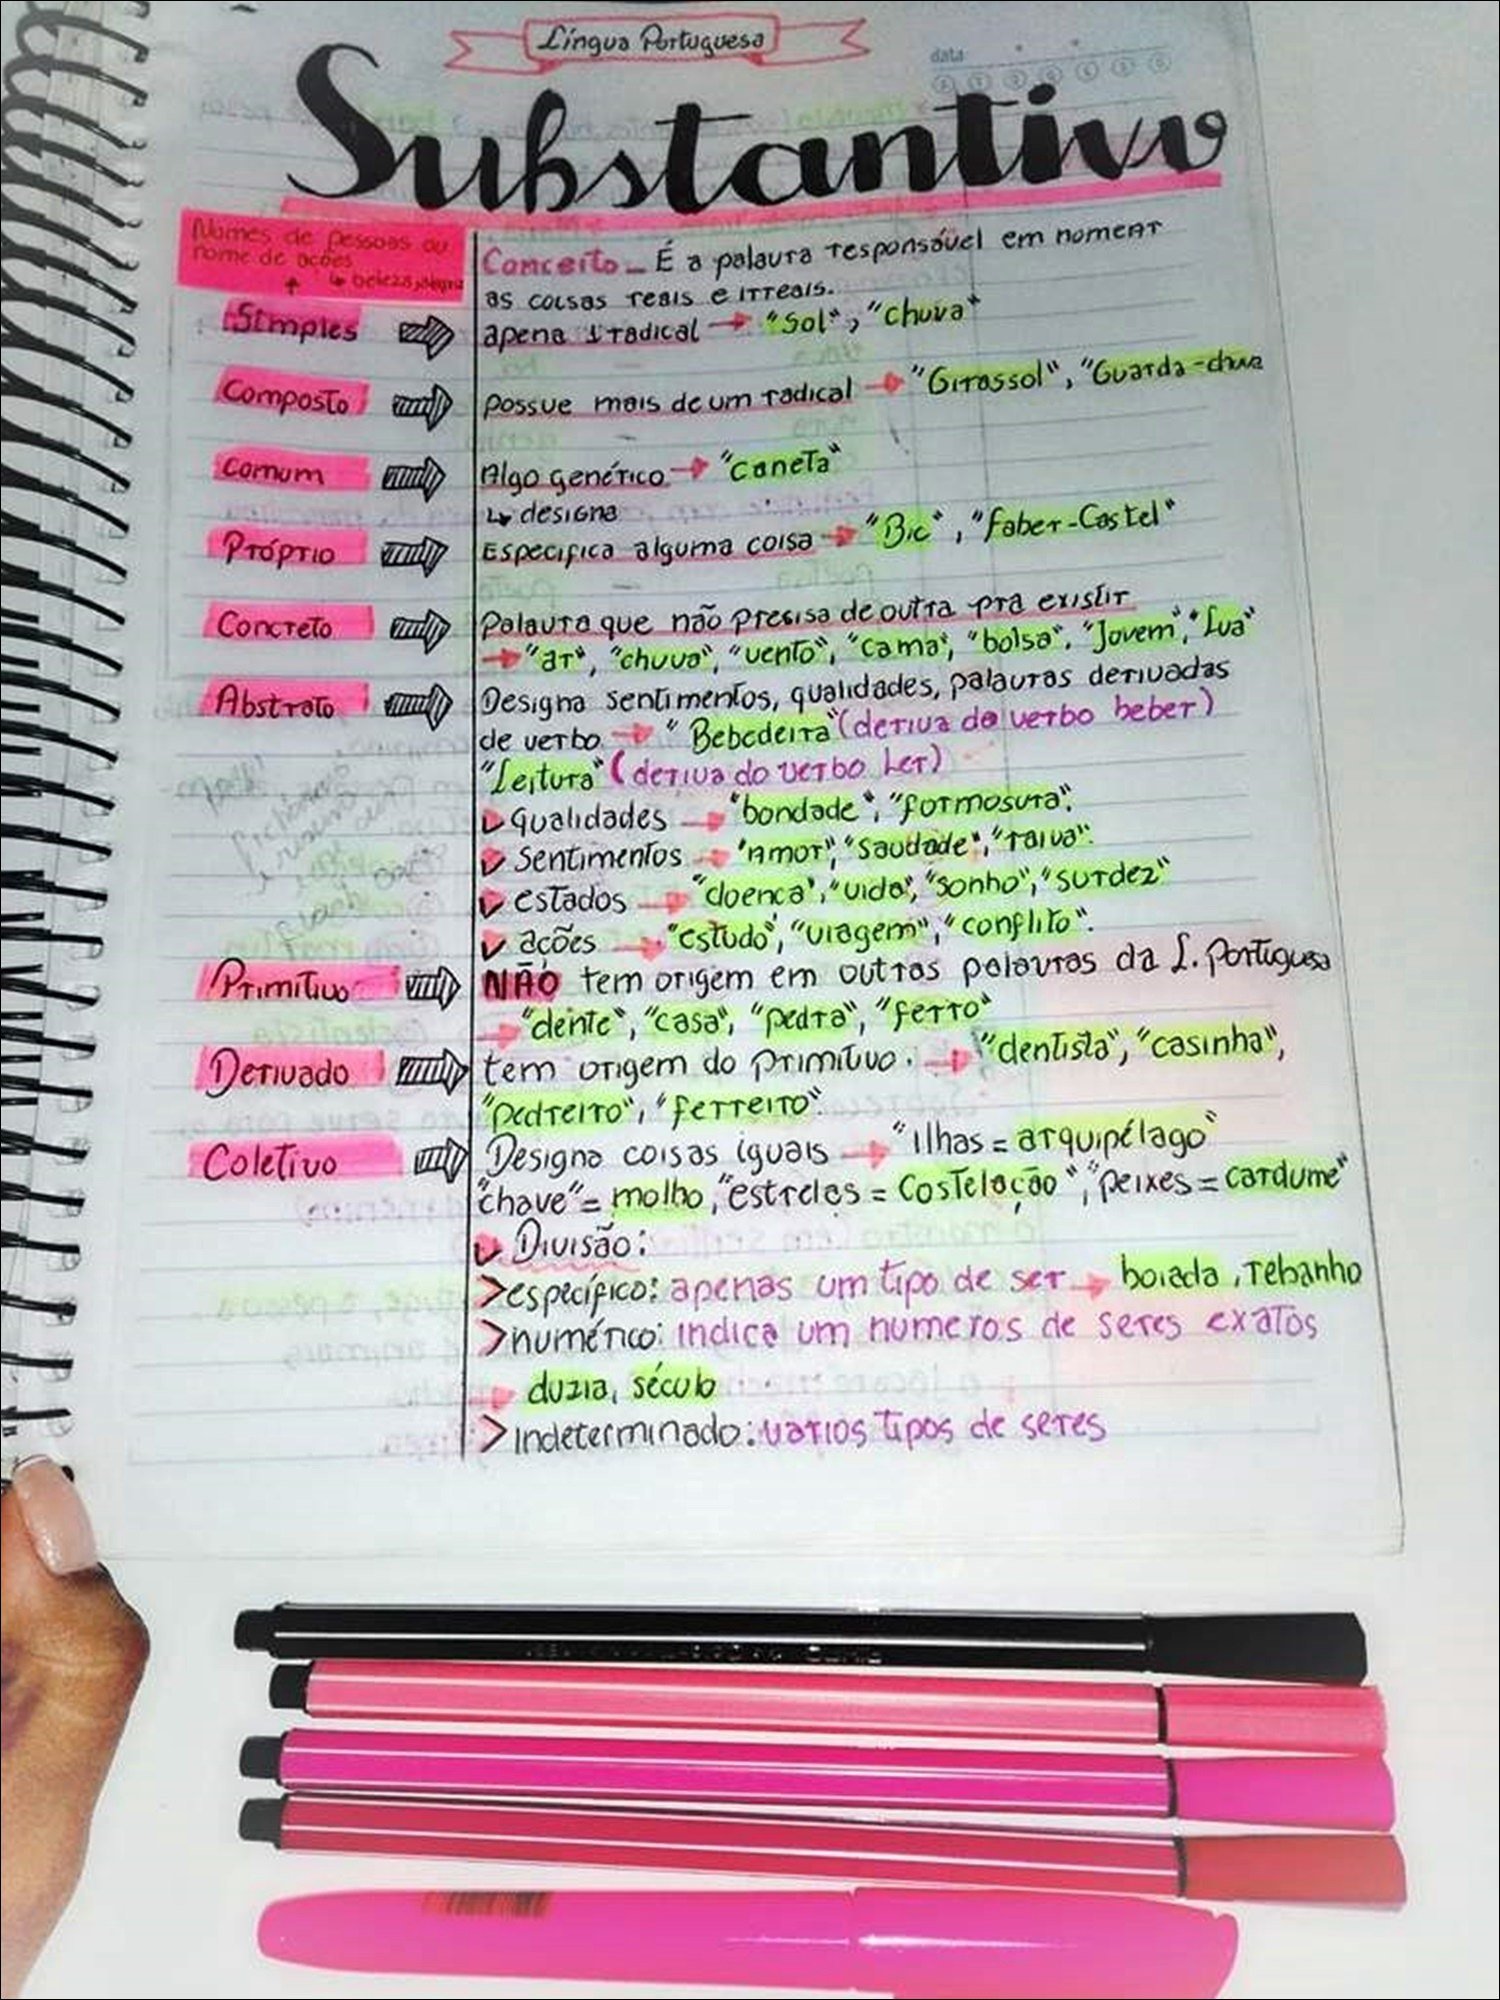 Língua Portuguesa
data
Substantivo
Nomes de pessoas ou
nome de ações
↳ beleza, alegria
Conceito - É a palavra responsável em nomear
as coisas reais e irreais.
Simples ⇒ apena 1 radical → "Sol", "chuva"
Composto ⇒ possue mais de um radical → "Girassol", "Guarda-chuva
Comum ⇒ Algo genérico → "caneta"
↳ designa
Próprio ⇒ Especifica alguma coisa → "Bic", "Faber-Castel"
Concreto ⇒ Palavra que não precisa de outra pra existir
→ "ar", "chuva", "vento", "cama", "bolsa", "Jovem", "Lua"
Abstrato ⇒ Designa sentimentos, qualidades, palavras derivadas
de verbo → "Bebedeira" (deriva do verbo beber)
"Leitura" (deriva do verbo Ler)
qualidades → "bondade", "formosura".
Sentimentos → "Amor", "saudade", "raiva".
estados → "doença", "vida", "sonho", "surdez"
ações → "estudo", "viagem", "conflito".
Primitivo ⇒ NÃO tem origem em outras palavras da L. Portuguesa
→ "dente", "casa", "pedra", "ferro"
Derivado ⇒ tem origem do primitivo. → "dentista", "casinha",
"pedreiro", "ferreiro".
Coletivo ⇒ Designa coisas iguais → "Ilhas = arquipélago"
"chave" = molho, "estrelas = Costelação", "peixes = cardume"
Divisão:
> específico: apenas um tipo de ser → boiada, rebanho
> numérico: indica um numeros de seres exatos
→ duzia, século
> Indeterminado: varios tipos de seres